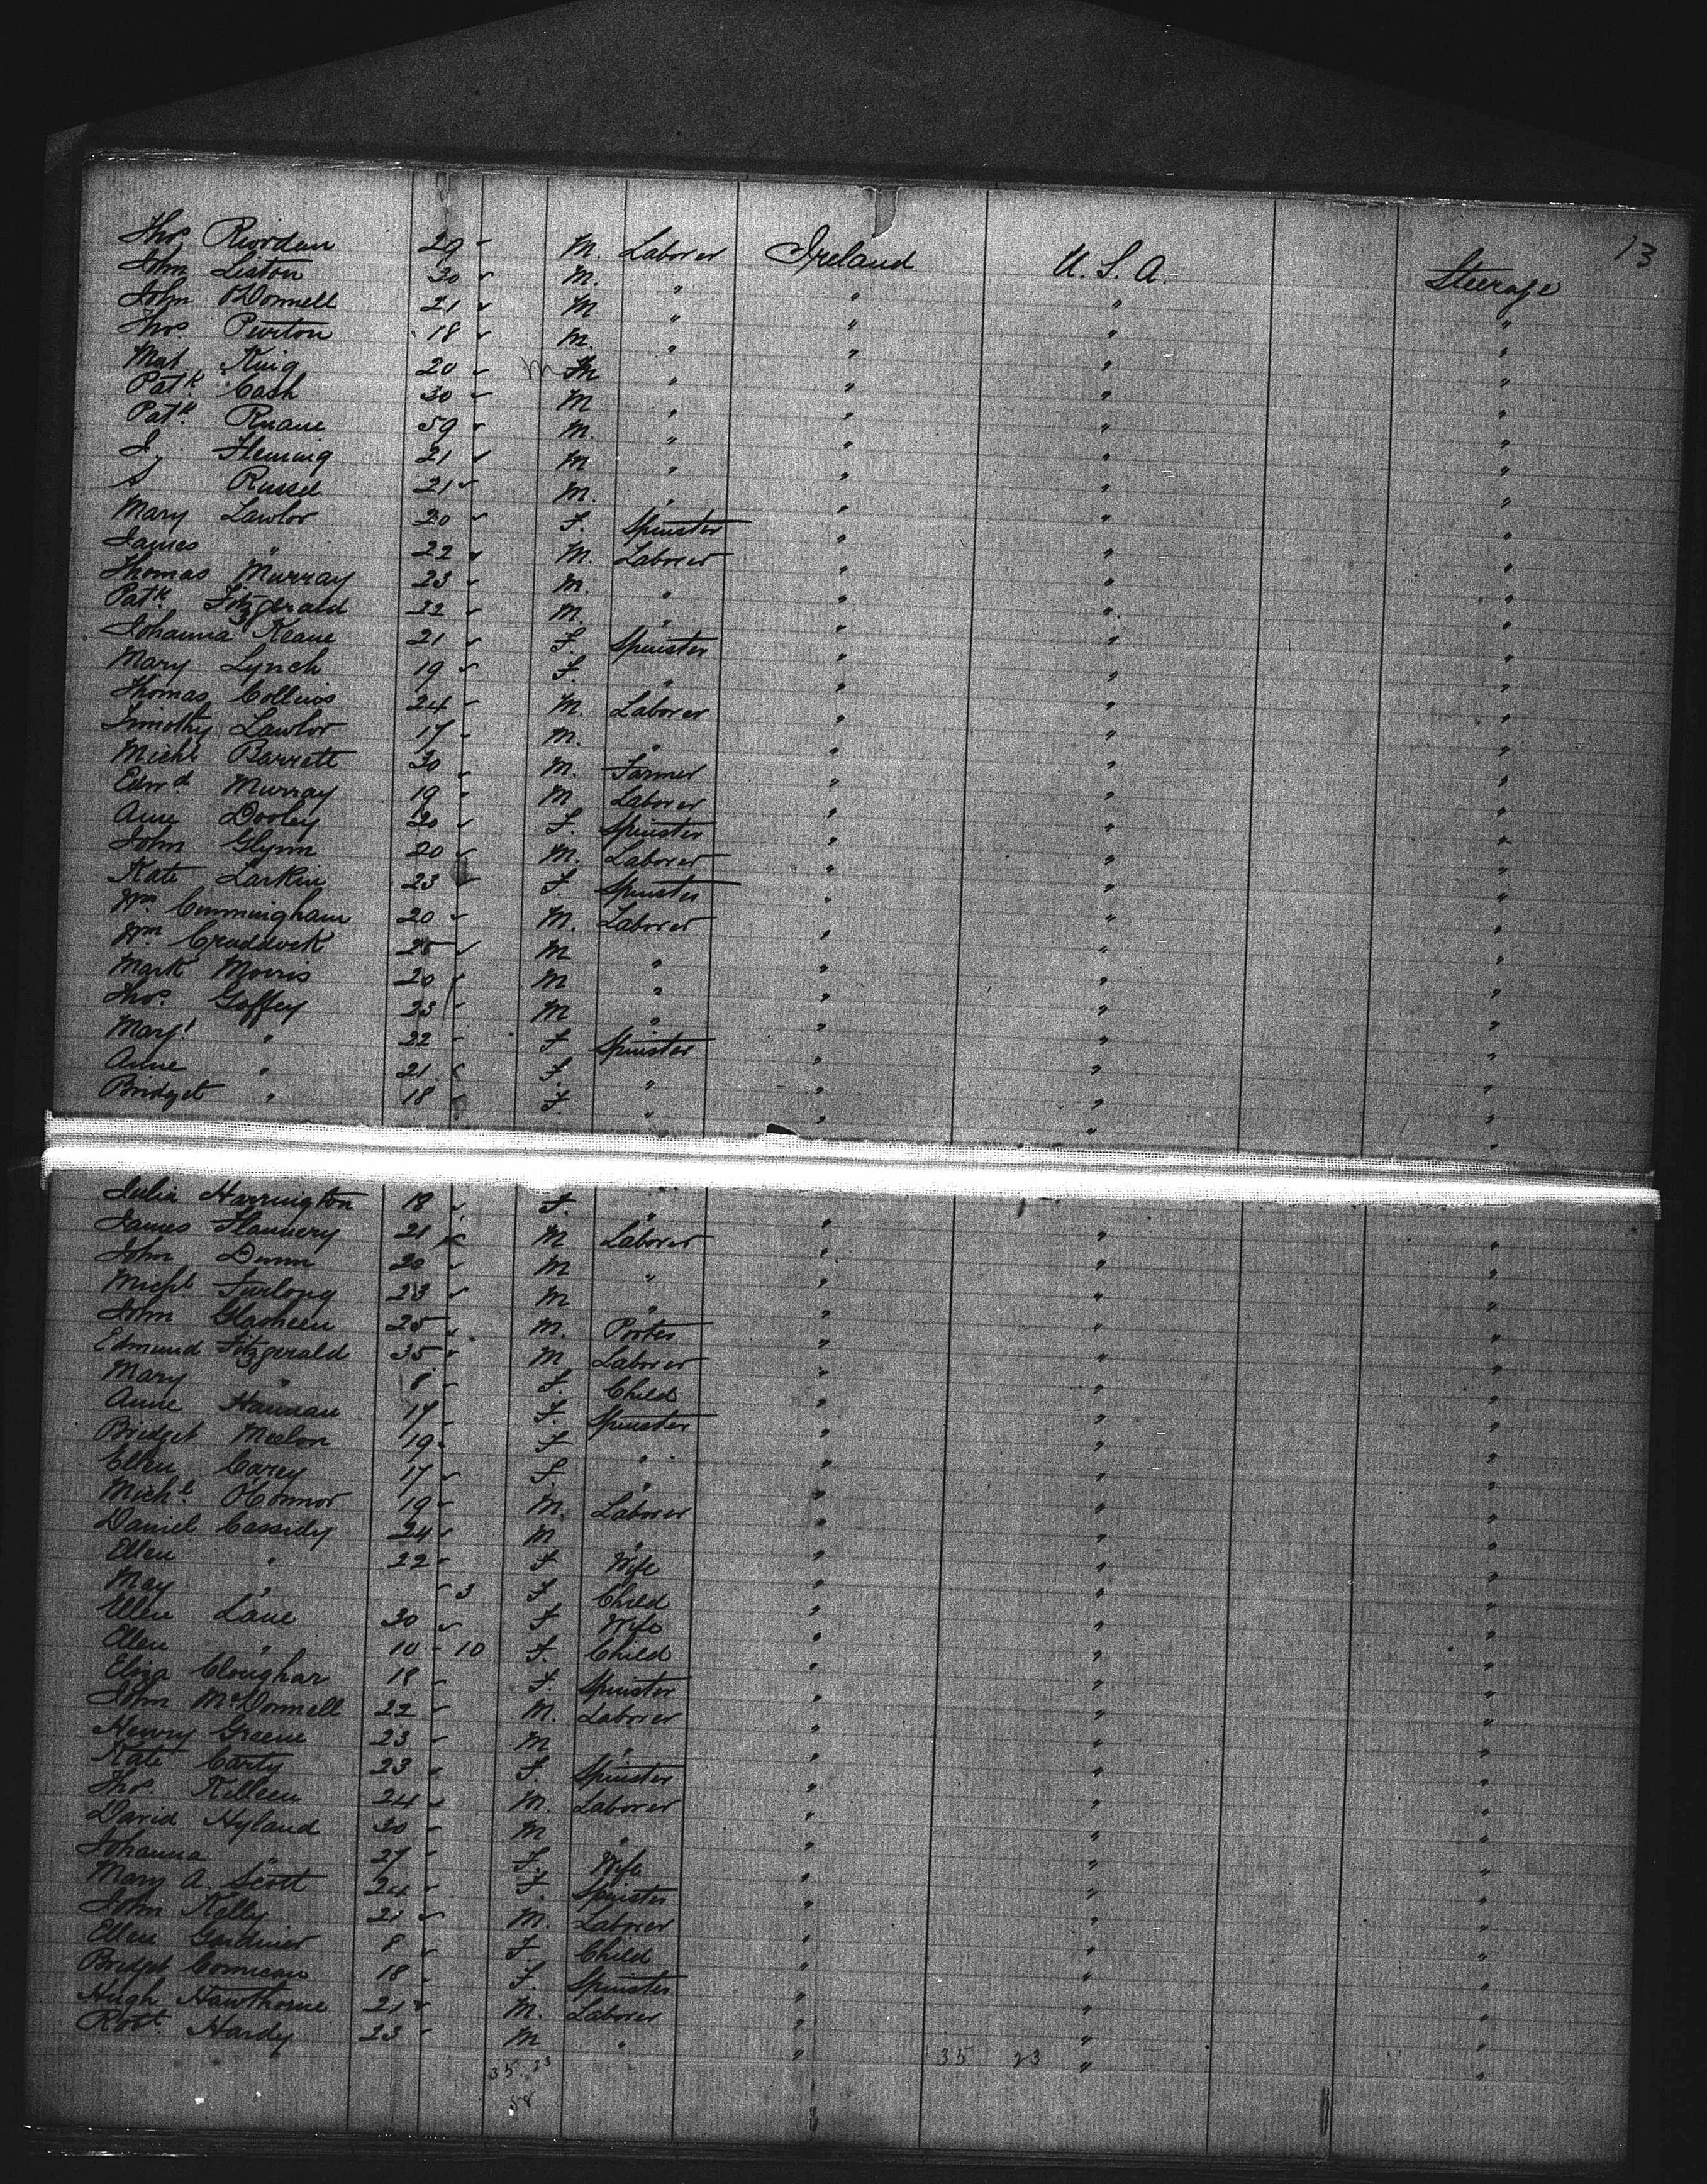 13
Thos. Riordan 29 M. Laborer Ireland U.S.A. Steerage
John Liston 30 M. " " " "
John O'Donnell 21 M " " " "
Thos. Purton 18 M. " " " "
Mat. King 20 M " " " "
Patk. Cash 30 M " " " "
Patk. Ruane 59 M. " " " "
J. Fleming 21 M " " " "
S Russel 21 M. " " " "
Mary Lawlor 20 F. Spinster " " "
James " 22 M. Laborer " " "
Thomas Murray 23 M. " " " "
Patk. Fitzgerald 22 M. " " " "
Johanna Keane 21 F. Spinster " " "
Mary Lynch 19 F. " " " "
Thomas Collins 24 M. Laborer " " "
Timothy Lawlor 17 M. " " " "
Michl Barrett 30 M. Farmer " " "
Edwd Murray 19 M Laborer " " "
Anne Dooley 20 F. Spinster " " "
John Glynn 20 M. Laborer " " "
Kate Larkin 23 F Spinster " " "
Wm. Cunningham 20 M. Laborer " " "
Wm. Craddock 25 M " " " "
Mark Morris 20 M " " " "
Thos. Gaffey 23 M " " " "
Mary " 22 F Spinster " " "
Anne " 21 F. " " " "
Bridget " 18 F " " " "
Julia Harrington 18 F. " " "
James Flannery 21 M Laborer " " "
John Dunn 20 M " " " "
Michl Furlong 23 M " " " "
John Glasheen 25 M. Porter " " "
Edmund Fitzgerald 35 M Laborer " " "
Mary " 8 F. Child " " "
Anne Hannan 17 F. Spinster " " "
Bridget 19 F " " " "
Ellen Carey 17 F. " " " "
Michl. O'Connor 19 M. Laborer " " "
Daniel Cassidy 24 M " " " "
Ellen " 22 F Wife " " "
May " 3 F Child " " "
Ellen Lane 30 F Wife " " "
Ellen " 10 - 10 F. Child " " "
Eliza Cloughar 18 F. Spinster " " "
John McDonnell 22 M. Laborer " " "
Henry Greene 23 M " " " "
Kate Carty 23 F. Spinster " " "
Thos. Killeen 24 M. Laborer " " "
David Hyland 30 M " " " "
Johanna " 27 F. Wife " " "
Mary A. Scott 24 F. Spinster " " "
John Kelly 21 M. Laborer " " "
Ellen Gardiner 8 F. Child " " "
Bridget 18 F. Spinster " " "
Hugh Hawthorne 21 M. Laborer " " "
Robt. Hardy 23 M " " " "
35. 23 35 23
58